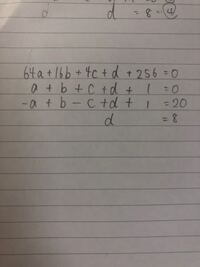 d = 8 - ④
64a + 16b + 4c + d + 256 = 0
a + b + c + d + 1 = 0
-a + b - c + d + 1 = 20
d = 8